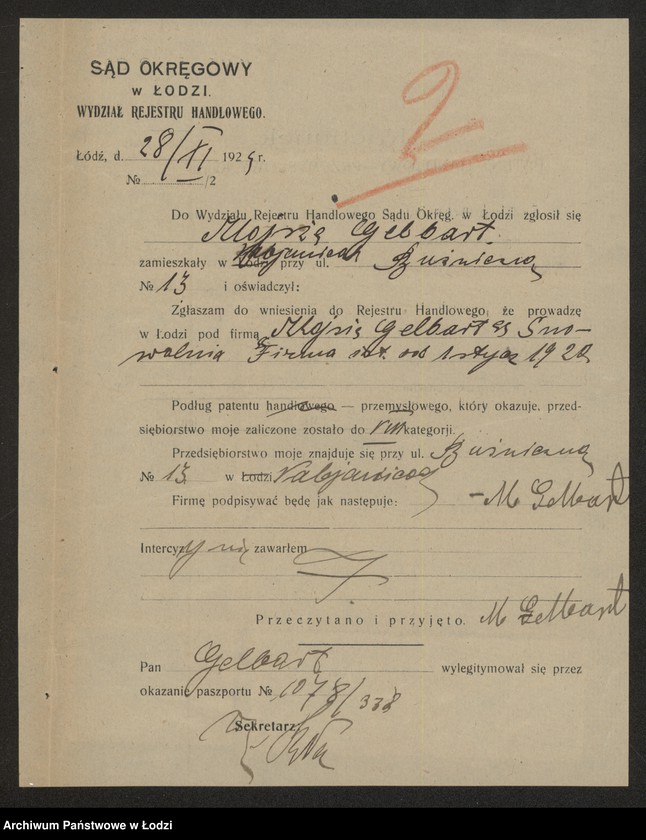 2
SĄD OKRĘGOWY
w ŁODZI.
WYDZIAŁ REJESTRU HANDLOWEGO.
Łódź, d. 28/XI 1925 r.
№ /2
Do Wydziału Rejestru Handlowego Sądu Okręg. w Łodzi zgłosił się
Gelbart.
zamieszkały w Łodzi Pabjanicach przy ul. Bużniczna
№ 13 i oświadczył:
Zgłaszam do wniesienia do Rejestru Handlowego, że prowadzę
w Łodzi pod firmą Gelbart Sno-
walnia Firma ist. od 1 stycz 1920
Podług patentu handlowego — przemysłowego, który okazuje, przed-
siębiorstwo moje zaliczone zostało do VIII kategorji.
Przedsiębiorstwo moje znajduje się przy ul. Bużniczna
№ 13 w Łodzi Pabjanicach
Firmę podpisywać będę jak następuje: – M Gelbart
Intercyzy nie zawarłem
Przeczytano i przyjęto. M Gelbart
Pan Gelbart wylegitymował się przez
okazanie paszportu № 1078/338
Sekretarz
Archiwum Państwowe w Łodzi